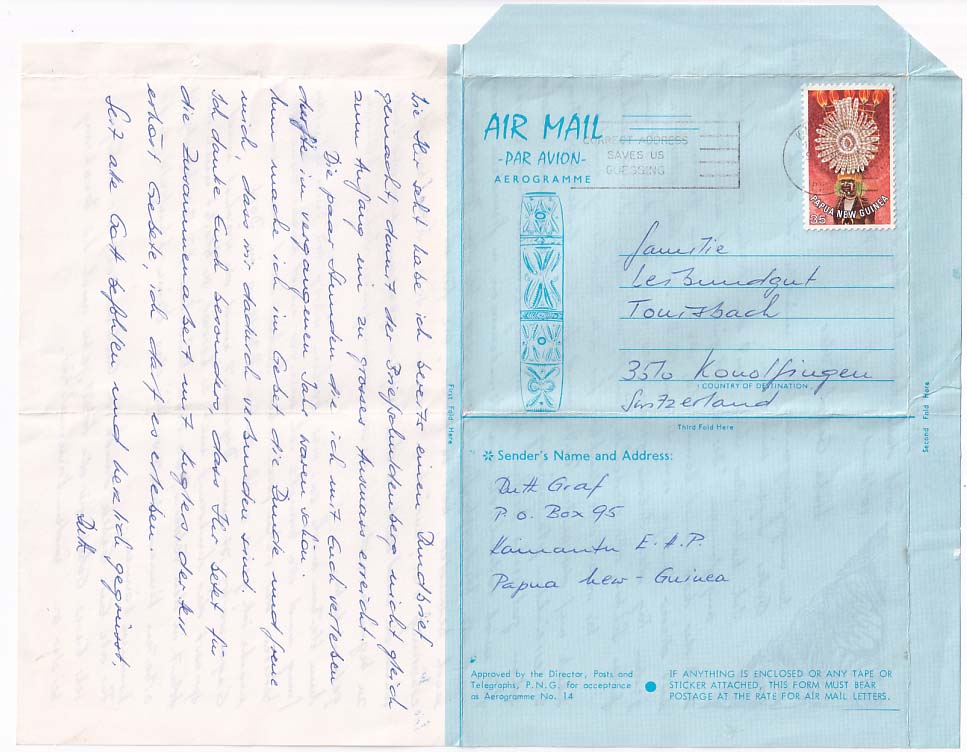 AIR MAIL
-PAR AVION-
AEROGRAMME
CORRECT ADDRESS
SAVES US
GUESSING
PAPUA NEW GUINEA
35
Familie
Tourisbach
3510 Konolfingen
COUNTRY OF DESTINATION
Switzerland
First Fold Here
Second Fold Here
Third Fold Here
Sender's Name and Address:
Ruth Graf
P.O. Box 95
Kainantu E.H.P.
Papua New-Guinea
Approved by the Director, Posts and
Telegraphs, P.N.G. for acceptance
as Aerogramme No. 14
IF ANYTHING IS ENCLOSED OR ANY TAPE OR
STICKER ATTACHED, THIS FORM MUST BEAR
POSTAGE AT THE RATE FOR AIR MAIL LETTERS.
Wie Ihr seht habe ich bereits einen Rundbrief
gemacht, damit der Briefschuldenberg nicht gleich
zum Anfang ein zu grosses Ausmass erreicht.
Die paar Stunden die ich mit Euch verleben
durfte im vergangenen Jahr waren schön.
Nun mache ich im Gebet die Runde und freue
mich, dass wir dadurch verbunden sind.
Ich danke Euch besonders, dass Ihr betet für
die Zusammenarbeit mit der Herr
erhört Gebete, ich darf es erleben.
Seit alle Gott befohlen und herzlich gegrüsst.
Ruth